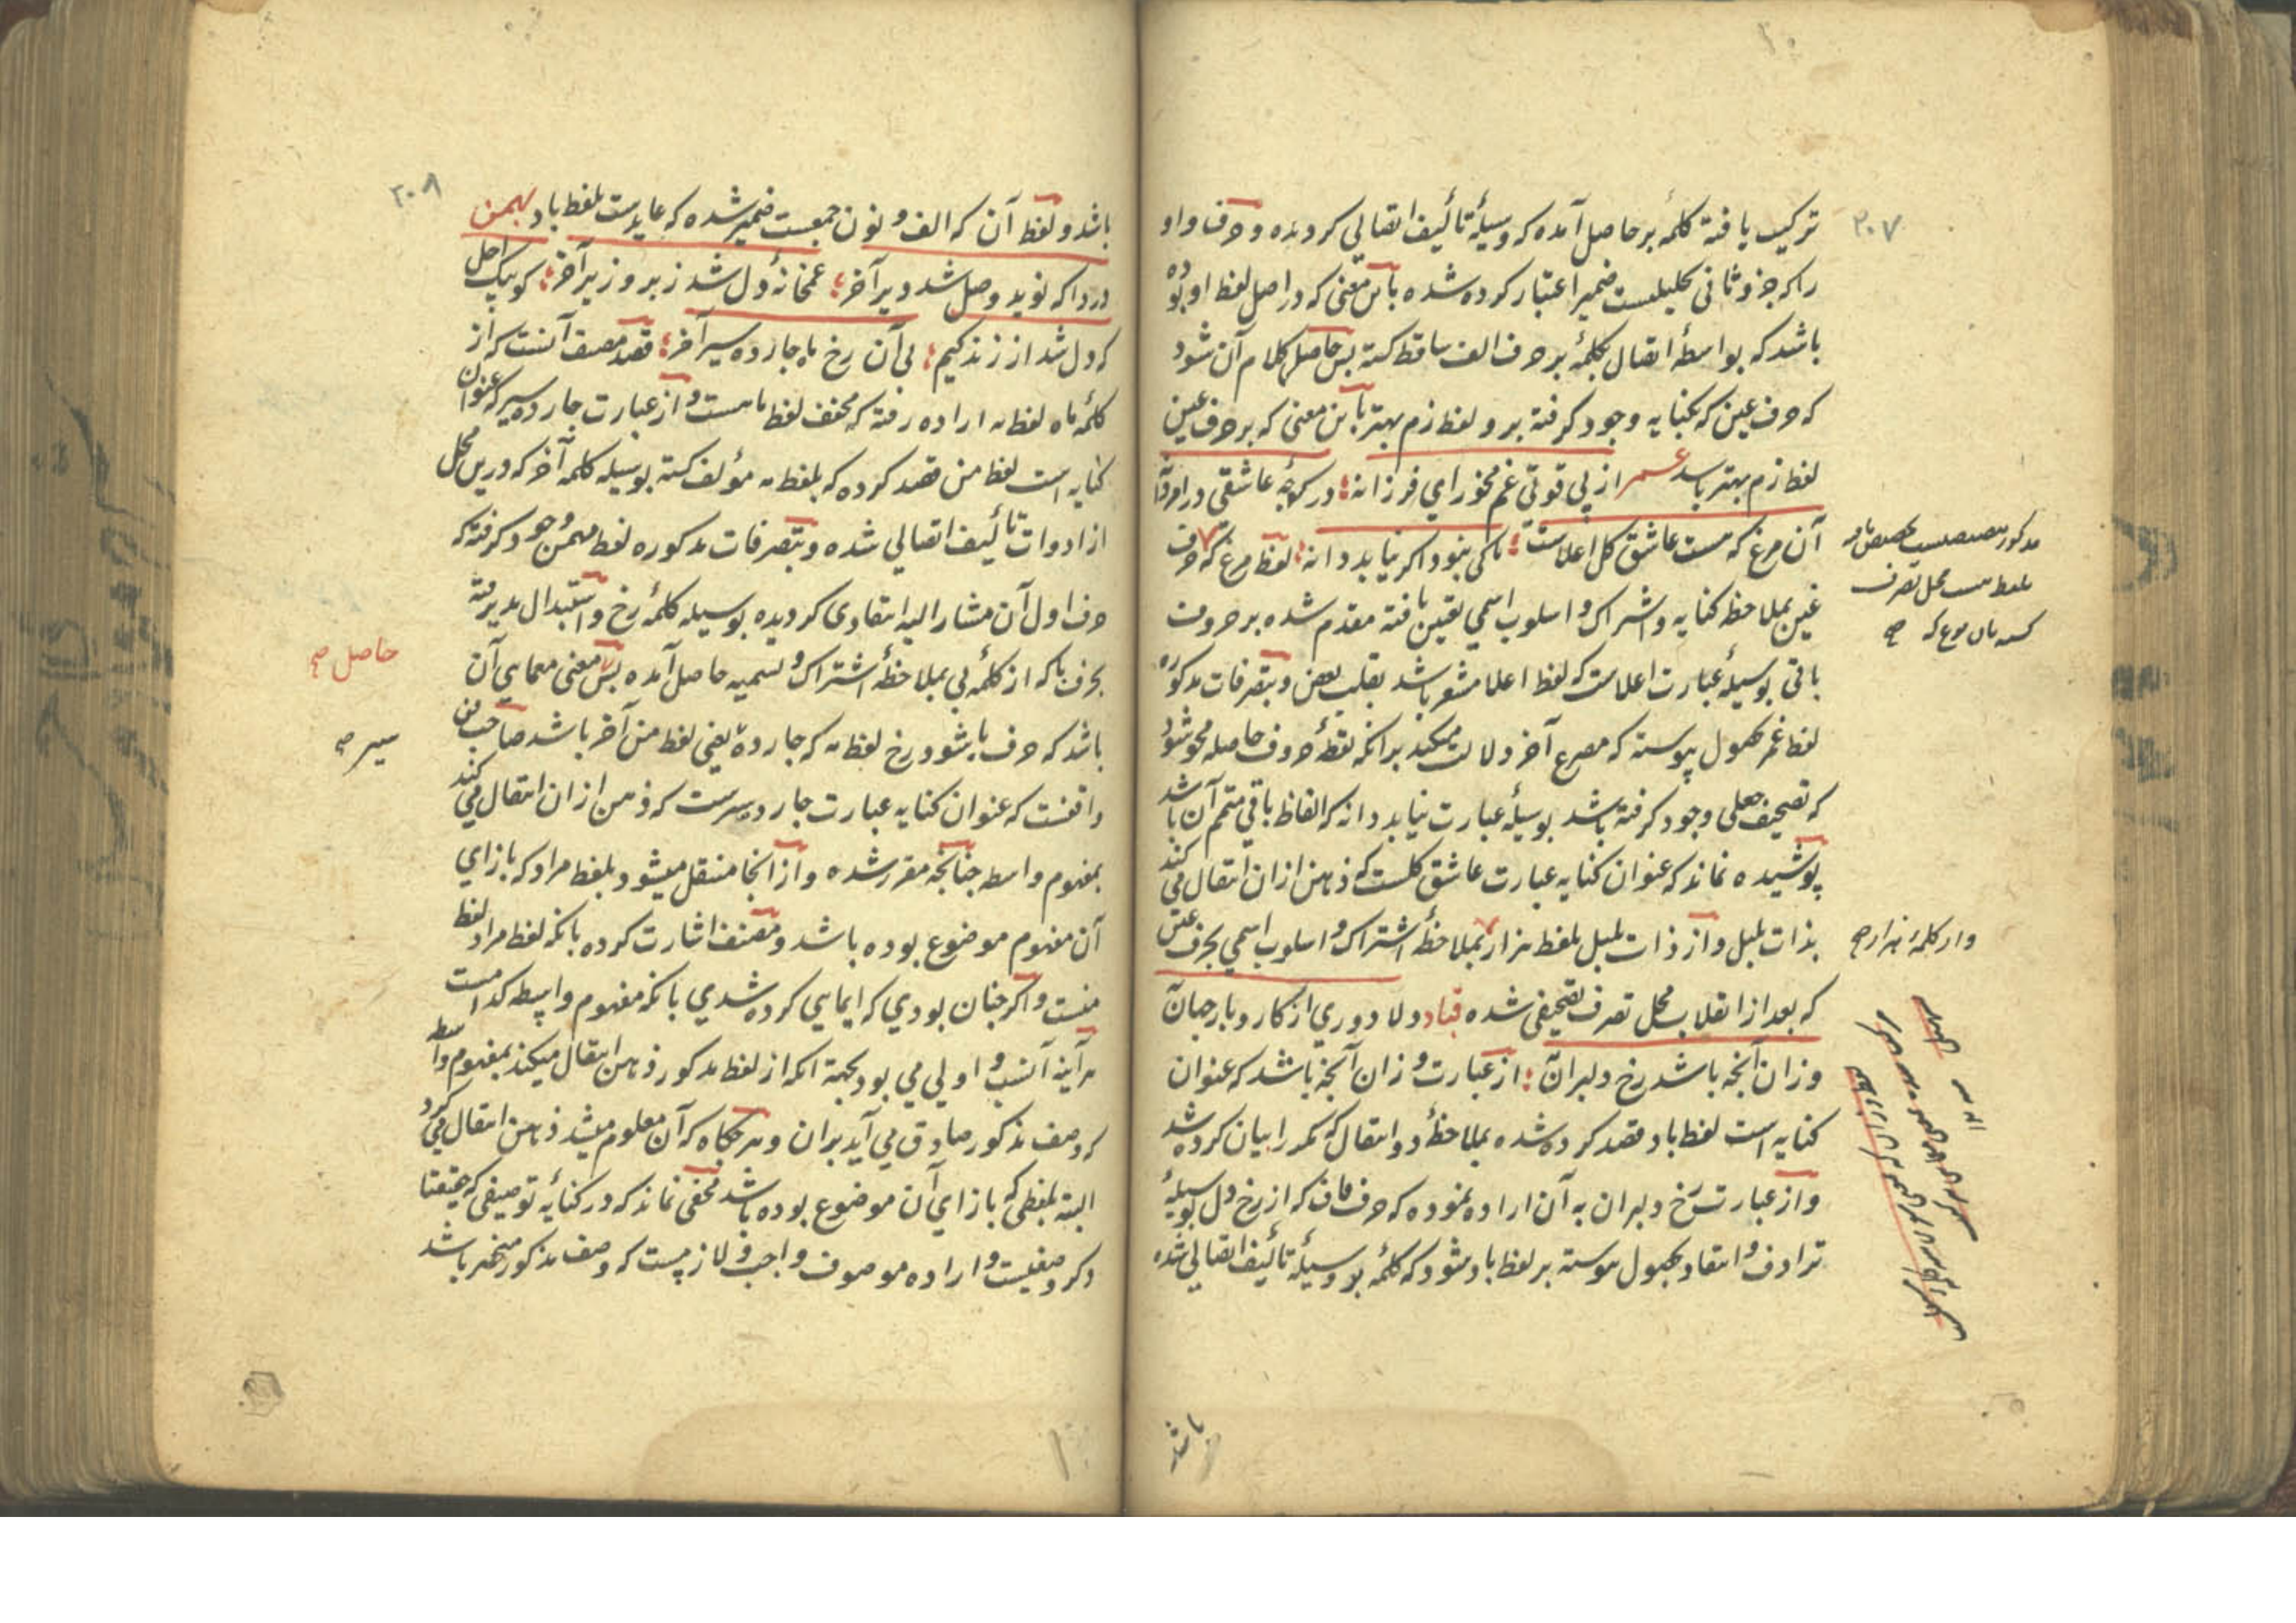 ۲۰۷
ترکیب یافته کلمهٔ بر حاصل آمده که وسیلهٔ تألیف اتصالی کردیده و حرف واو
را که جزو ثانی تحلیلست ضمیر اعتبار کرده شده باین معنی که در اصل لفظ او بوده
باشد که بواسطهٔ اتصال بکلمهٔ بر حرف الف ساقط کشته پس حاصل کلام آن شود
که حرف عین که بکنایه وجود کرفته بر و لفظ زم بهتر باین معنی که بر حرف عین
لفظ زم بهتر باشد عمر از بی قوتی غم مخور ای فرزانه در کوچهٔ عاشقی درا
آن مرغ که مست عاشق کل اعلاست باکی نبود اکر نیابد دانه لفظ مرغ که حرف
غین بملاحظه کنایه و اشتراک و اسلوب اسمی تعین یافته مقدم شده بر حروف
باقی بوسیلهٔ عبارت اعلاست که لفظ اعلا مشعر باشد بقلب بعض و بتصرفات مذکوره
لفظ عمر بحصول پیوسته که مصرع آخر دلالت میکند برانکه نقطهٔ حروف حاصله محو شود
که تصحیف جعلی وجود کرفته باشد بوسیلهٔ عبارت نیابد دانه که الفاظ باقی متمم آن باشد
پوشیده نماند که عنوان کنایه عبارت عاشق کلست که ذهن ازان انتقال می کند
بذات بلبل و از ذات بلبل بلفظ هزار بملاحظهٔ اشتراک و اسلوب اسمی بحرف غین
که بعد از انقلاب محل تصرف تصحیفی شده قباد دلا دوری از کار و بار جهان
وزان آنچه باشد رخ دلبران از عبارت وزان آنچه باشد که عنوان
کنایه است لفظ باد قصد کرده شده بملاحظهٔ دو انتقال که مکرر بیان کرده شد
و از عبارت رخ دلبران به آن اراده نموده که حرف قاف که از رخ دل بوسیلهٔ
ترادف و انتقاد بحصول پیوسته بر لفظ باد شود که کلمهٔ بر وسیلهٔ تألیف اتصالی شده
وار کلمهٔ هزار صح
باشد
۲۰۸
باشد و لفظ آن که الف و نون جمعیت ضمیر شده که عایدست بلفظ باد بهمن
دردا که نوید وصل شد دیر آخر غمخانهٔ دل شد زبر و زیر آخر کو پیک اجل
که دل شد از زندکیم بی آن رخ ماه چارده سیر آخر قصد مصنف آنست که از
کلمهٔ ماه لفظ مه اراده رفته که مخفف لفظ ماهست و از عبارت چارده سیر که عنوان
کنایه است لفظ من قصد کرده که بلفظ مه مؤلف کشته بوسیله کلمهٔ آخر که درین محل
از ادوات تألیف اتصالی شده و بتصرفات مذکوره لفظ مهمن وجود کرفته که
حرف اول آن مشار الیه انتقادی کردیده بوسیله کلمهٔ رخ و استبدال پذیرفته
بحرف با که از کلمهٔ بی بملاحظهٔ اشتراک و تسمیه حاصل آمده پس معنی معمایی آن
باشد که حرف با شود رخ لفظ مه که چارده یعنی لفظ من آخر باشد صاحب فن
واقفست که عنوان کنایه عبارت چارده سیرست که ذهن ازان انتقال می کند
بمفهوم واسطه چنانچه مقرر شده و از انجا منتقل میشود بلفظ مراد که بازای
آن مفهوم موضوع بوده باشد و مصنف اشارت کرده بانکه لفظ مراد لفظ
منست و اکر چنان بودی که ایمایی کرده شدی بانکه مفهوم واسطه کدامست
هر آینه آنسب و اولی می بود بجهة انکه از لفظ مذکور ذهن انتقال میکند بمفهوم واسطه
که وصف مذکور صادق می آید بران و هر کاه که آن معلوم میشد ذهن انتقال می کرد
البته بلفظی که بازای آن موضوع بوده باشد مخفی نماند که در کنایهٔ توصیفی که حقیقتا
ذکر وصفیست و اراده موصوف واجب و لازمست که وصف مذکور منحصر باشد
حاصل صح
سیر صح